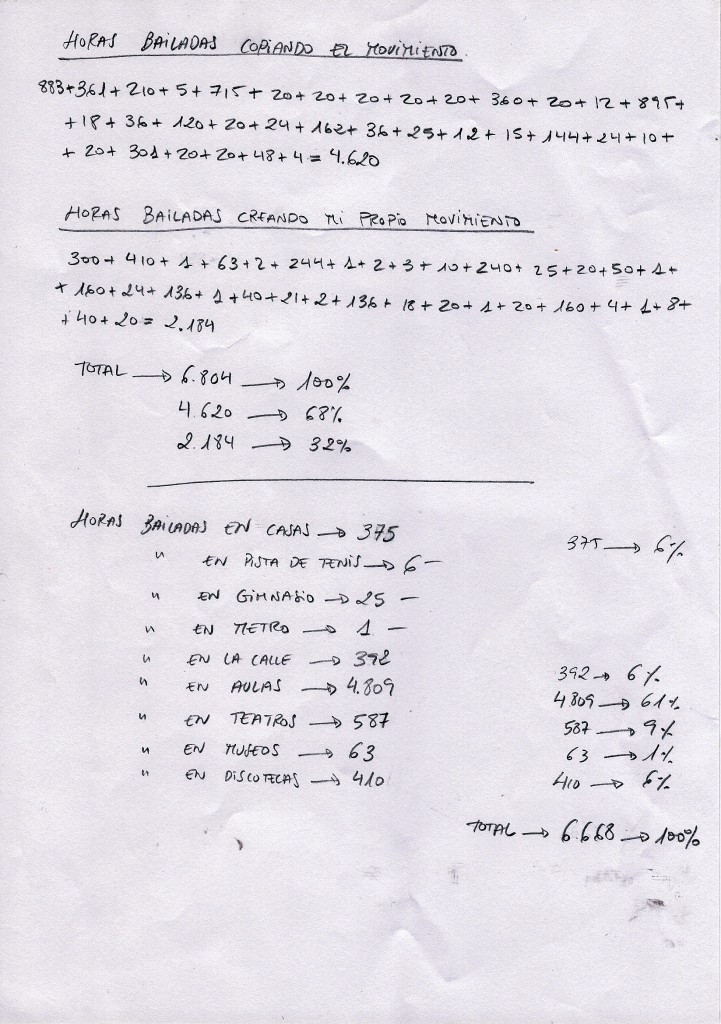 HORAS BAILADAS COPIANDO EL MOVIMIENTO.
883+361+210+5+715+20+20+20+20+20+360+20+12+895+
+18+36+120+20+24+162+36+25+12+15+144+24+10+
+20+301+20+20+48+4=4.620
HORAS BAILADAS CREANDO MI PROPIO MOVIMIENTO
300+410+1+63+2+244+1+2+3+10+240+25+20+50+1+
+160+24+136+1+40+21+2+136+18+20+1+20+160+4+1+8+
+40+20=2.184
TOTAL → 6.804 → 100%
4.620 → 68%
2.184 → 32%
HORAS BAILADAS EN CASAS → 375 375 → 6%
" EN PISTA DE TENIS → 6 –
" EN GIMNASIO → 25 –
" EN METRO → 1 –
" EN LA CALLE → 392 392 → 6%
" EN AULAS → 4.809 4809 → 61%
" EN TEATROS → 587 587 → 9%
" EN MUSEOS → 63 63 → 1%
" EN DISCOTECAS → 410 410 → 6%
TOTAL → 6.668 → 100%